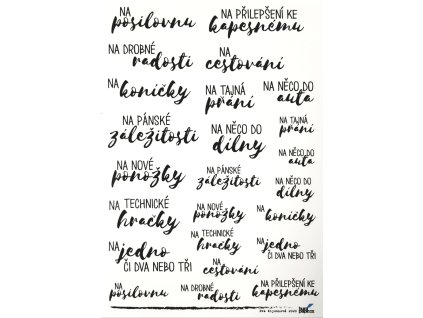 NA posilovnu
NA PŘILEPŠENÍ KE
kapesnému
NA DROBNÉ
radosti
NA
cestování
NA koníčky
NA TAJNÁ
přání
NA NĚCO DO
auta
NA PÁNSKÉ
záležitosti
NA NĚCO DO
dílny
NA TAJNÁ
přání
NA NĚCO DO
auta
NA NOVÉ
ponožky
NA PÁNSKÉ
záležitosti
NA NĚCO DO
dílny
NA TECHNICKÉ
hračky
NA NOVÉ
ponožky
NA koníčky
NA jedno
ČI DVA NEBO TŘI
NA TECHNICKÉ
hračky
NA jedno
ČI DVA NEBO TŘI
NA
cestování
NA
posilovnu
NA DROBNÉ
radosti
NA PŘILEPŠENÍ KE
kapesnému